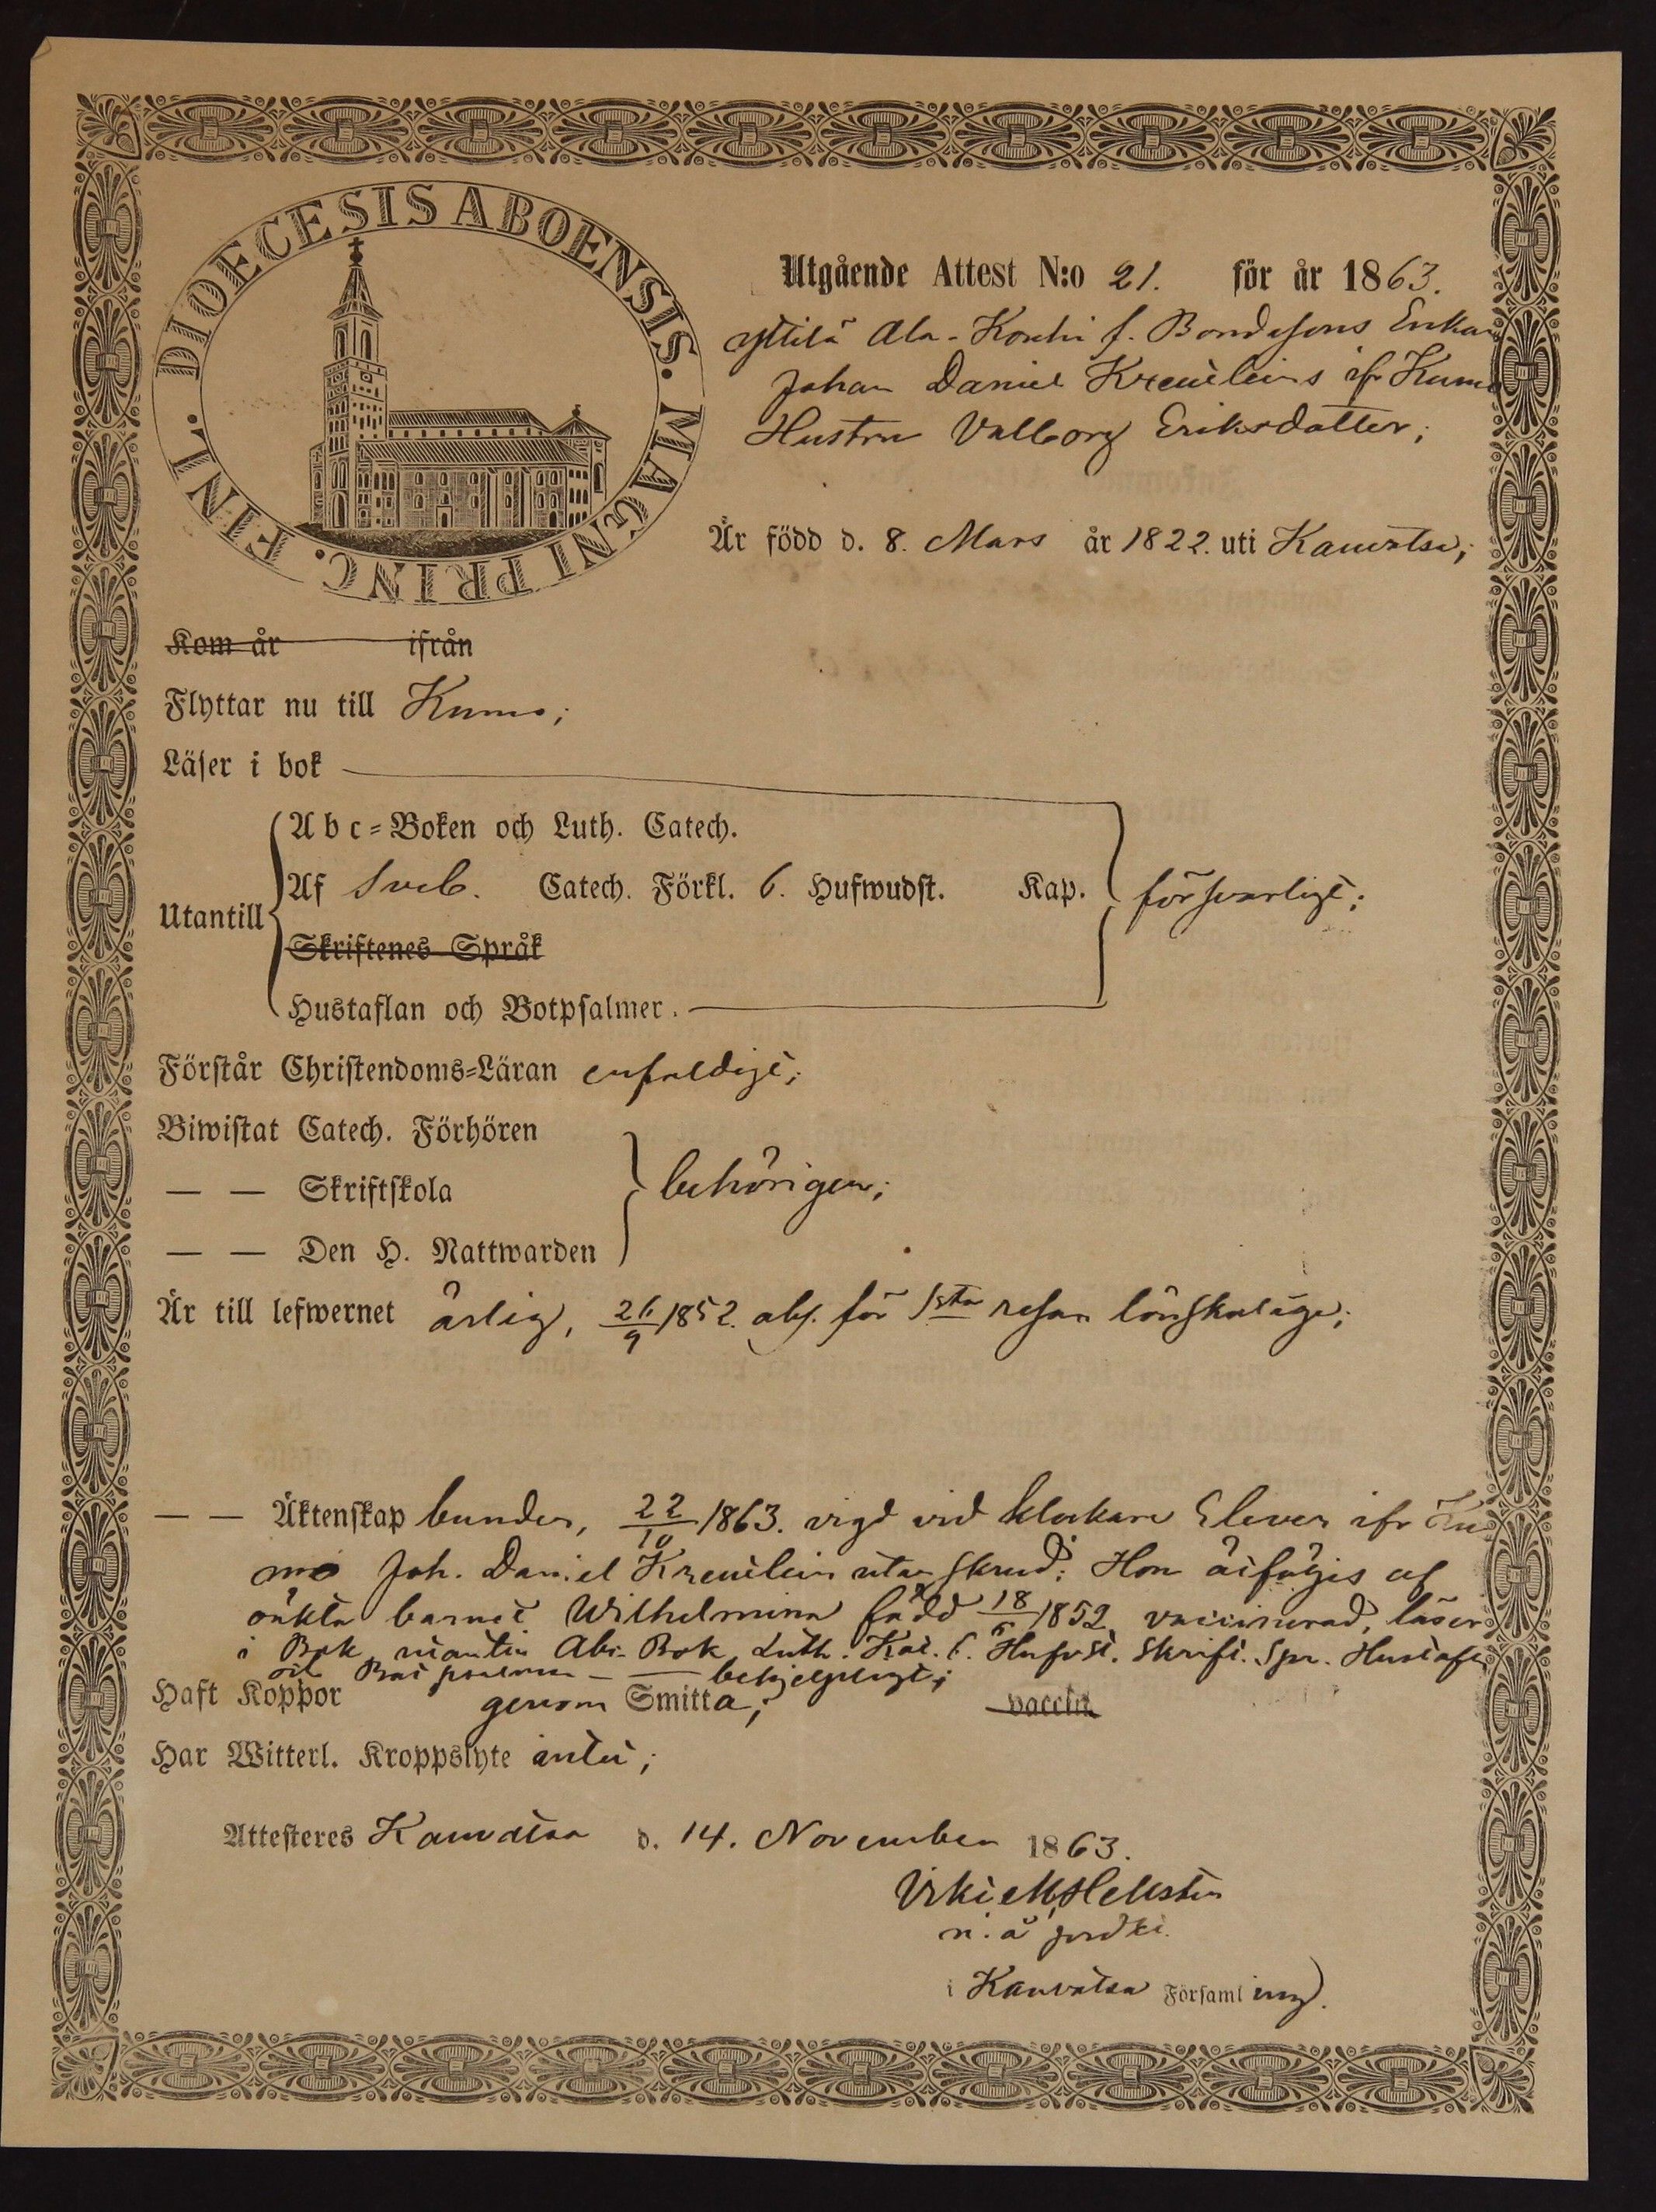 DIOECESIS ABOENSIS. MAGNI PRINC. FINL.
Utgående Attest N:o 21. för år 1863.
Yttilä Ala-Koschi f. Bondesons Enkan
Johan Daniel Kreuileins ifr Kumo
Hustru Valborg Eriksdotter;
Är född d. 8. Mars år 1822. uti Kauvatsa;
Kom år ifrån
Flyttar nu till Kumo;
Läser i bok
Utantill
Abc-Boken och Luth. Catech.
Af Sveb. Catech. Förkl. 6. Hufwudst. Kap. försvarligt;
Skriftenes Språk
Hustaflan och Botpsalmer.
Förstår Christendoms-Läran enfaldigt;
Biwistat Catech. Förhören
— — Skriftskola behörigen;
— — Den H. Nattwarden
Är till lefwernet ärlig, 26/9 1852. abs. för 1sta resan lönskaläge;
— — Äktenskap bunden, 22/10 1863. vigd vid klockare Eleven ifr Ku
mo Joh. Daniel Kreuilein utan skrud; Hon åtföljes af
oäkta barnet Wilhelmina född 18/6 1852, vaccinerad, läser
i Bok utantill Abc-Bok Luth. Kat. 6. Hufvst. Skrift. Spr. Hustafl.
och Botpsalmer — — behjelpligt;
Haft Koppor genom Smitta; vaccin
Har Witterl. Kroppslyte intet;
Attesteres Kauvatsa d. 14. November 1863.
Hellstén
i Kauvatsa Församling.